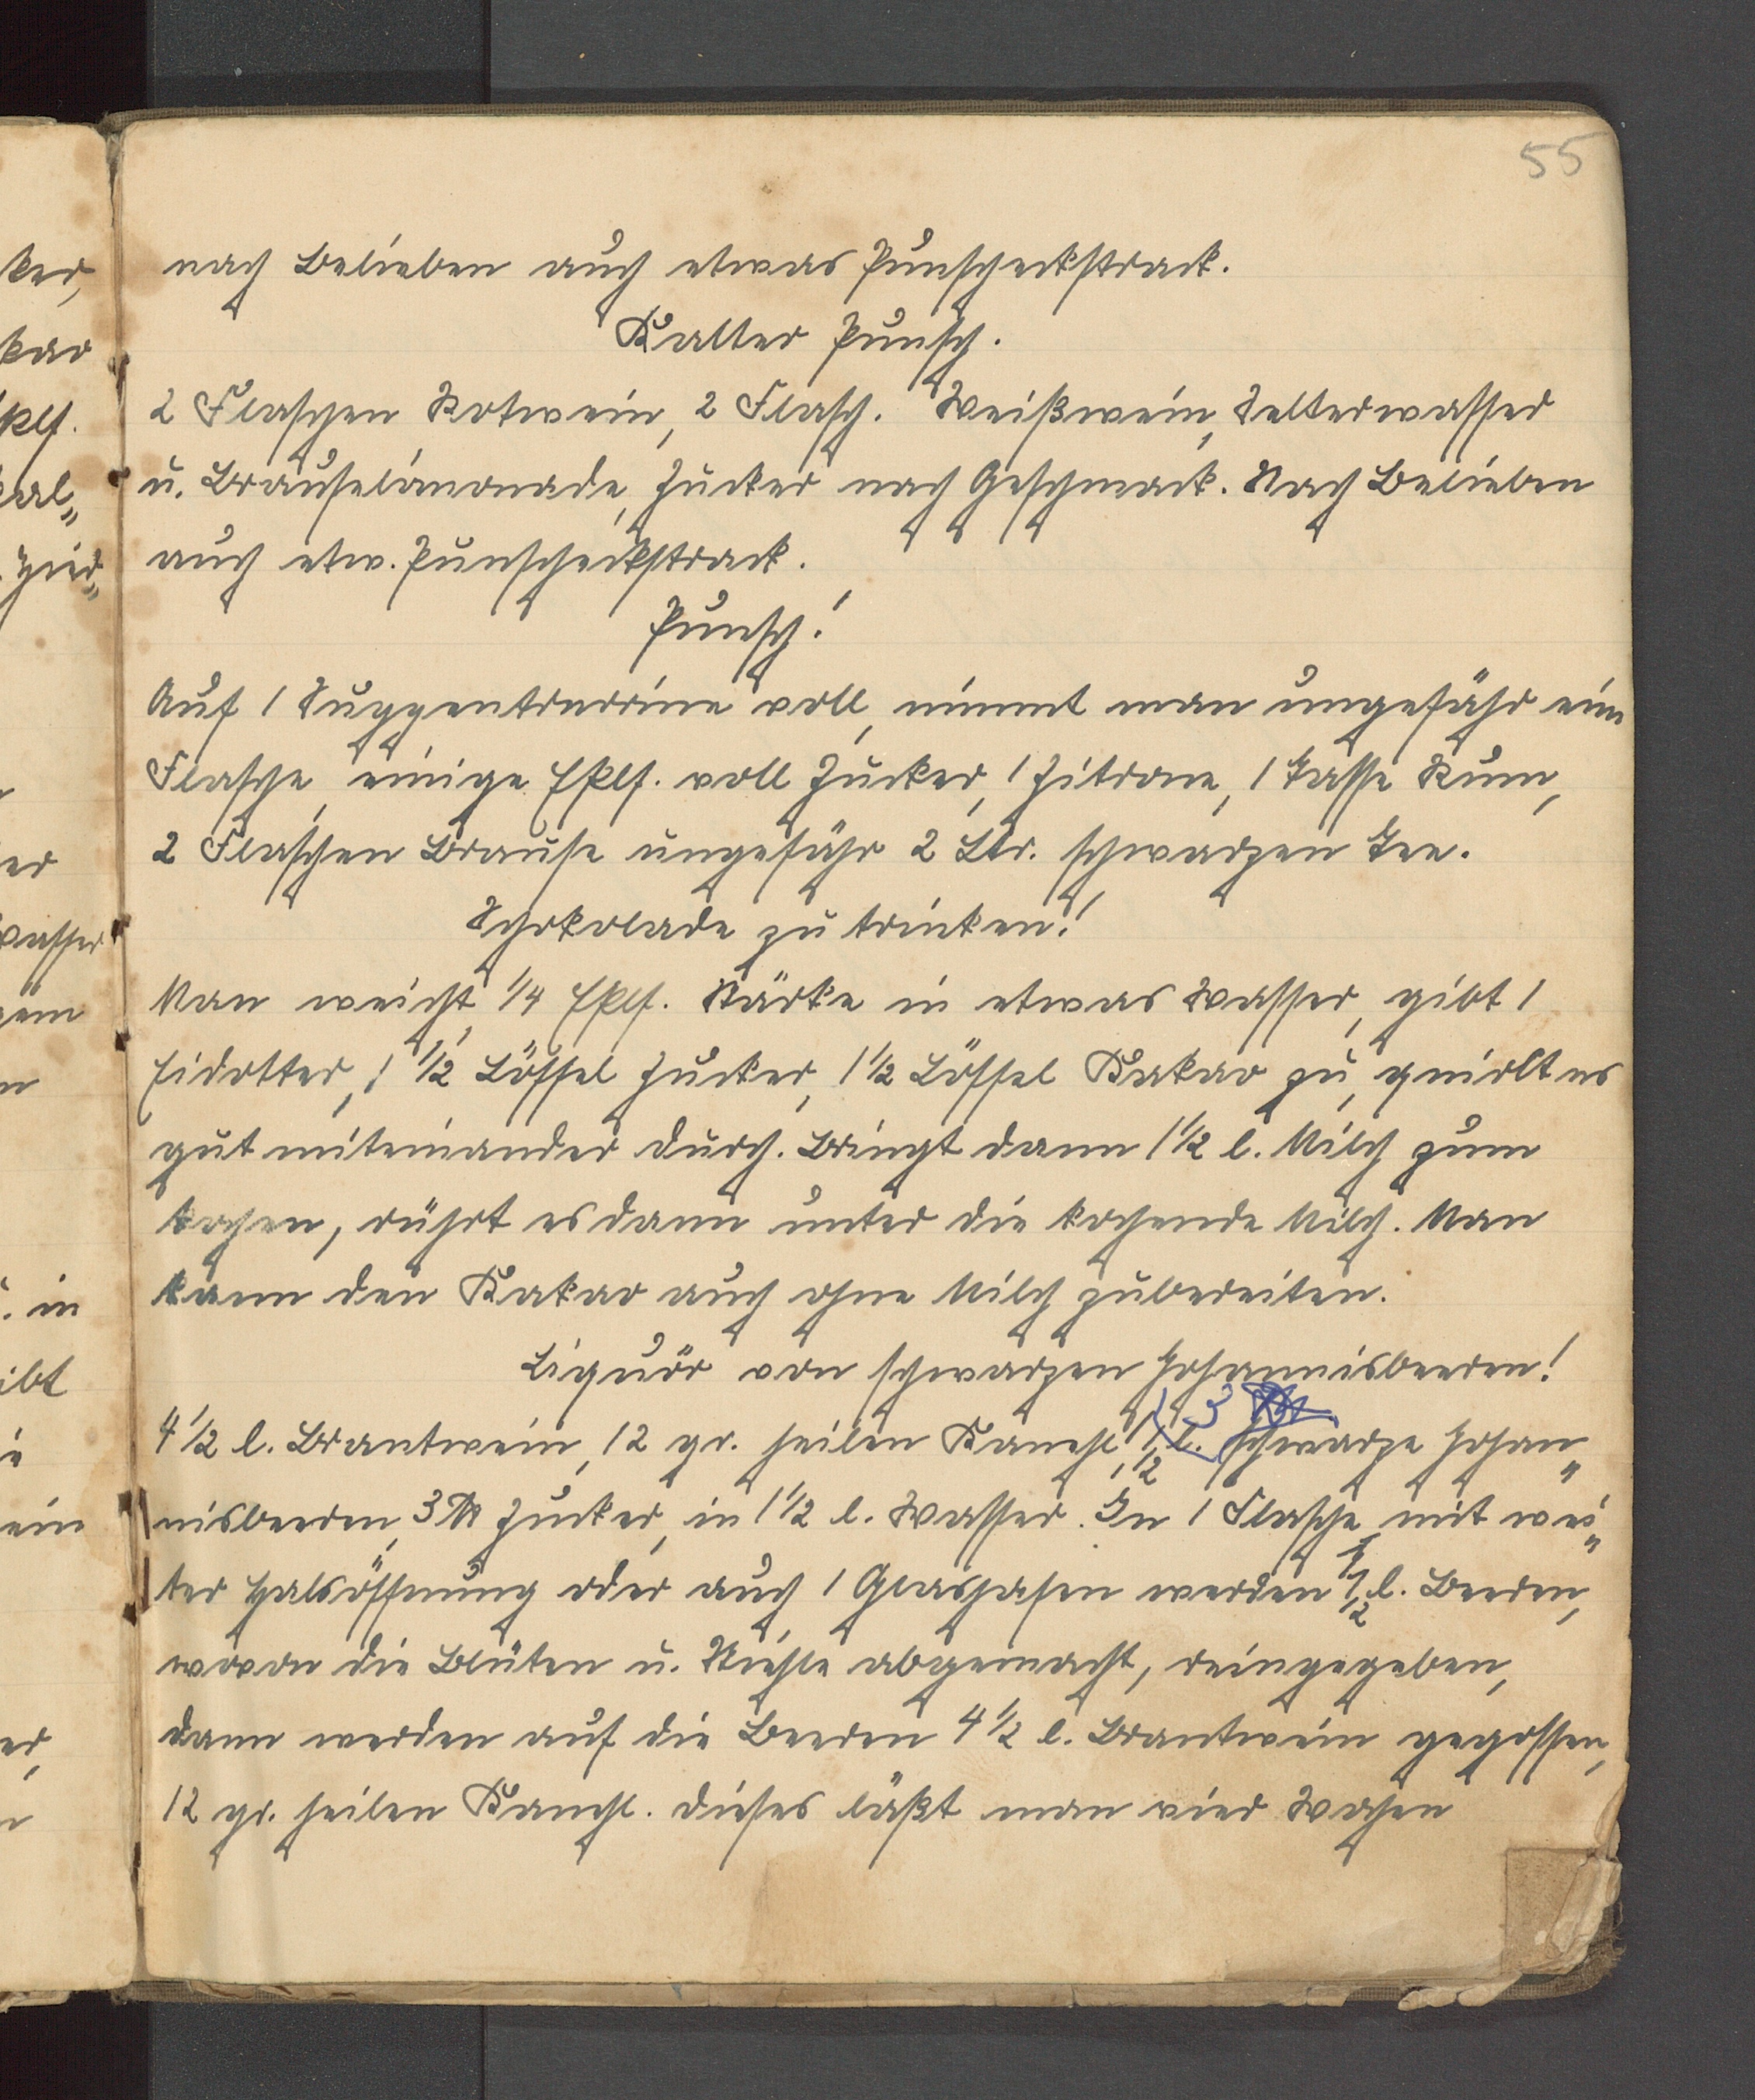 55
nach Belieben auch etwas Punscheckstrack.
Kalter Punsch.
2 Flaschen Rotwein, 2 Flasch. Weißwein, Selterwasser
u. Brauselimonade, Zucker nach Geschmack. Nach Belieben
auch etw. Punscheckstrack.
Punsch!
Auf 1 Suppenterrine voll, nimmt man ungefähr eine
Flasche, einige Eßlf. voll Zucker, 1 Zitrone, 1 Tasse Rum,
2 Flaschen Brause ungefähr 2 Ltr. schwarzen Tee.
Schokolade zu trinken!
Man weicht 1/4 Eßlf. Stärke in etwas Wasser, gibt 1
Eidotter, 1 1/2 Löffel Zucker, 1 1/2 Löffel Kakao zu, quirlt es
gut miteinander durch. Bringt dann 1 1/2 l. Milch zum
kochen, rührt es dann unter die kochende Milch. Man
kann den Kakao auch ohne Milch zubereiten.
Liquör von schwarzen Johannisbeeren!
3
4 1/2 l. Brantwein, 12 gr. heilen Kanehl, 1 1/2 l. schwarze Johan„
nisbeeren, 3 ℔ Zucker, in 1 1/2 l. Wasser. In 1 Flasche, mit wei„
ter Halsöffnung oder auch 1 Glashafen werden 1 1/2 l. Beeren,
wovon die Blüten u. Stiehle abgemacht, reingegeben,
dann werden auf die Beeren 4 1/2 l. Brantwein gegossen,
12 gr. heilen Kanehl. dieses läßt man vier Wochen
ker,
kao
ßlf.
er
wasser
in
ibt
ein
er,